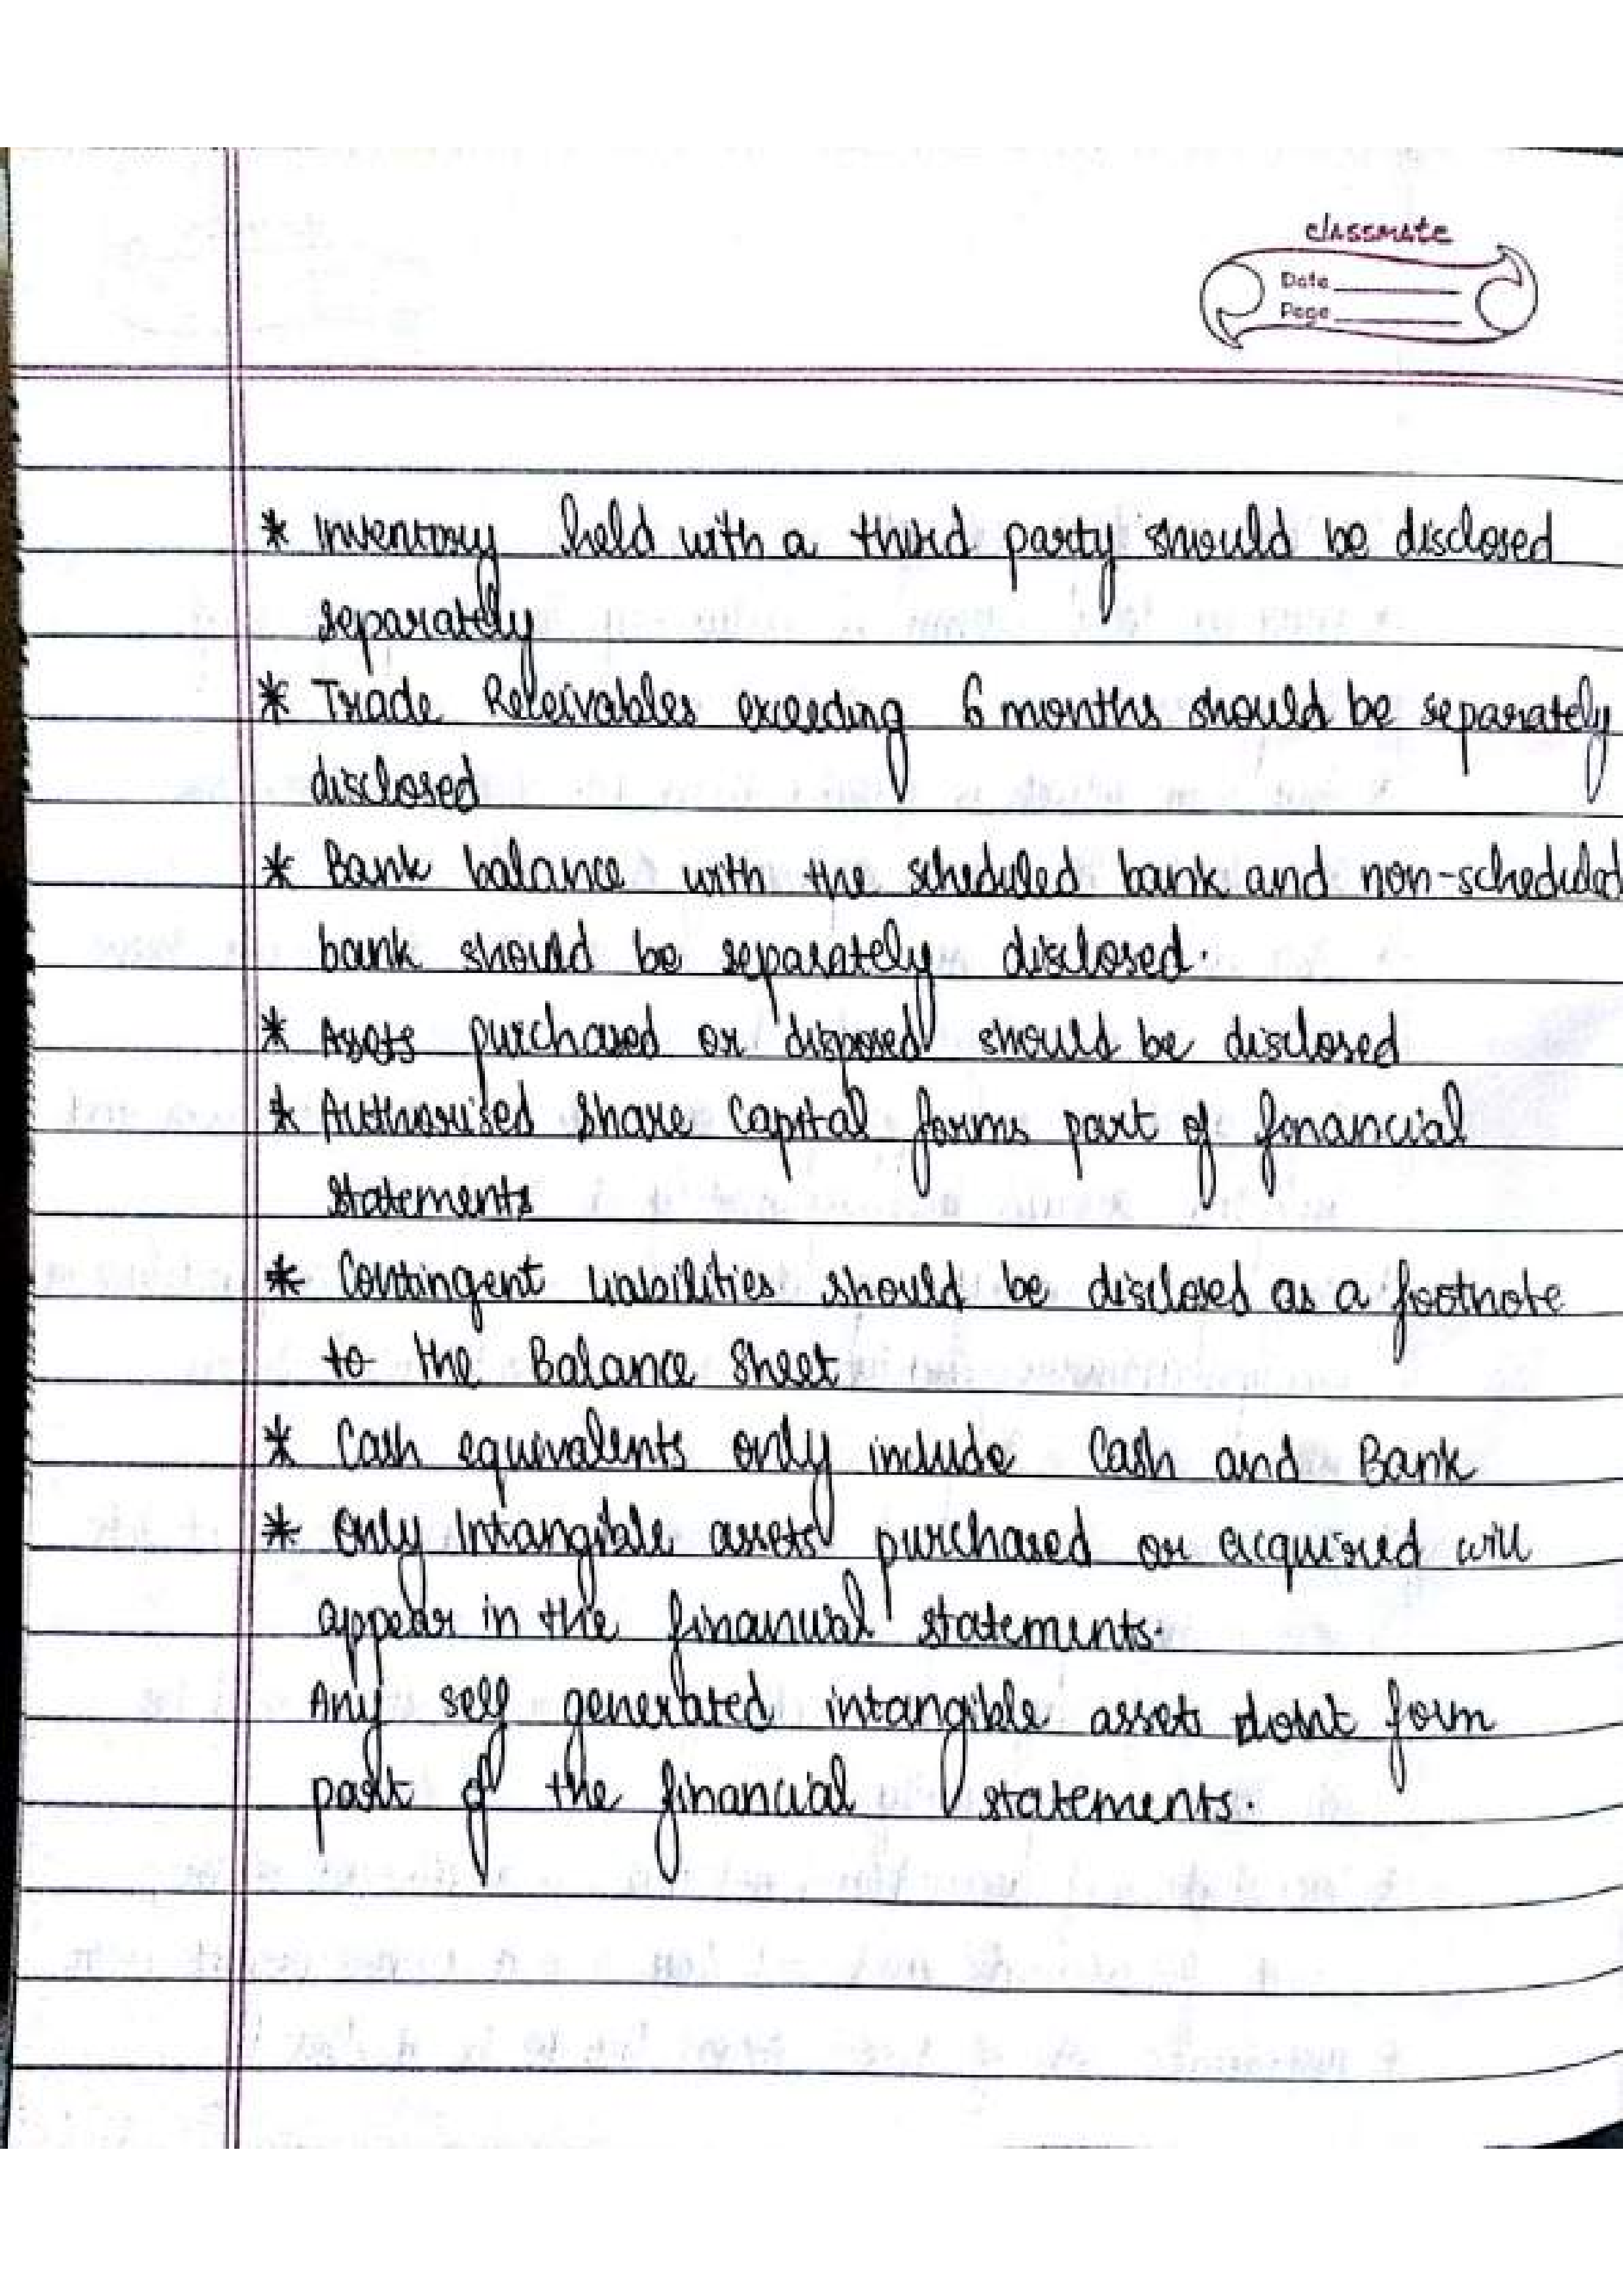 classmate
Date
Page
* Inventory held with a third party should be disclosed
separately
* Trade Receivables exceeding 6 months should be separately
disclosed
* Bank balance with the scheduled bank and non-scheduled
bank should be separately disclosed.
* Assets purchased or disposed should be disclosed
* Authorised Share Capital forms part of financial
statements
* Contingent liabilities should be disclosed as a footnote
to the Balance Sheet
* Cash equivalents only include Cash and Bank
* Only Intangible assets purchased or acquired will
appear in the financial statements.
Any self generated intangible assets don't form
part of the financial statements.